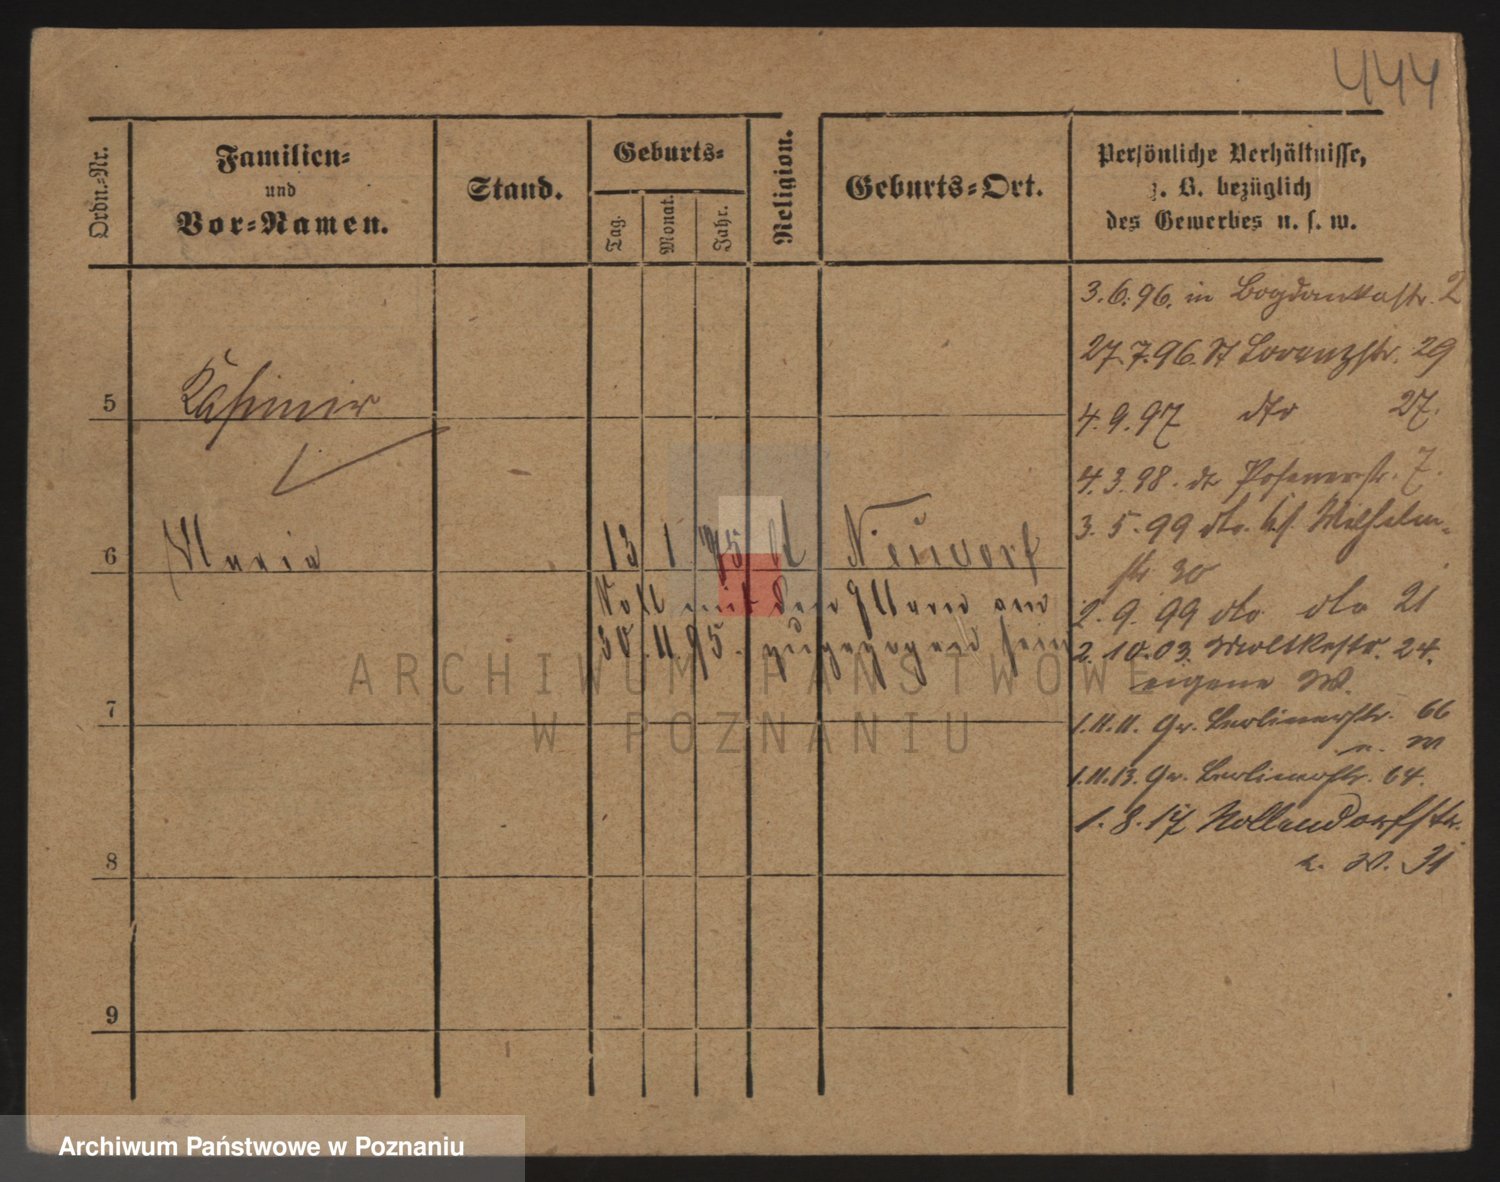 444
Ordn.-Nr.
Familien-
und
Vor-Namen.
Stand.
Geburts-
Tag.
Monat.
Jahr.
Religion.
Geburts-Ort.
Persönliche Verhältnisse,
z. B. bezüglich
des Gewerbes u. s. w.
3.6.96. in Bogdankastr. 2
27.7.96. St Lorenzstr. 29
5 Kasimir
4.9.97 dto 27.
4.3.98. Posenerstr. 7.
3.5.99 dto. Wilhelm-
str 30
6 Maria 13 1 95 Neudorf
Soll mit den Eltern am
30.11.95. zugezogen sein
2.9.99 dto dto 21
2.10.03. Moltkestr. 24.
eigene W.
7
1.11.11. Gr. Berlinerstr. 66
1.11.13. Gr. Berlinerstr. 64.
1.8.17 Nollendorfstr.
W. 31
8
9
ARCHIWUM PAŃSTWOWE
W POZNANIU
Archiwum Państwowe w Poznaniu